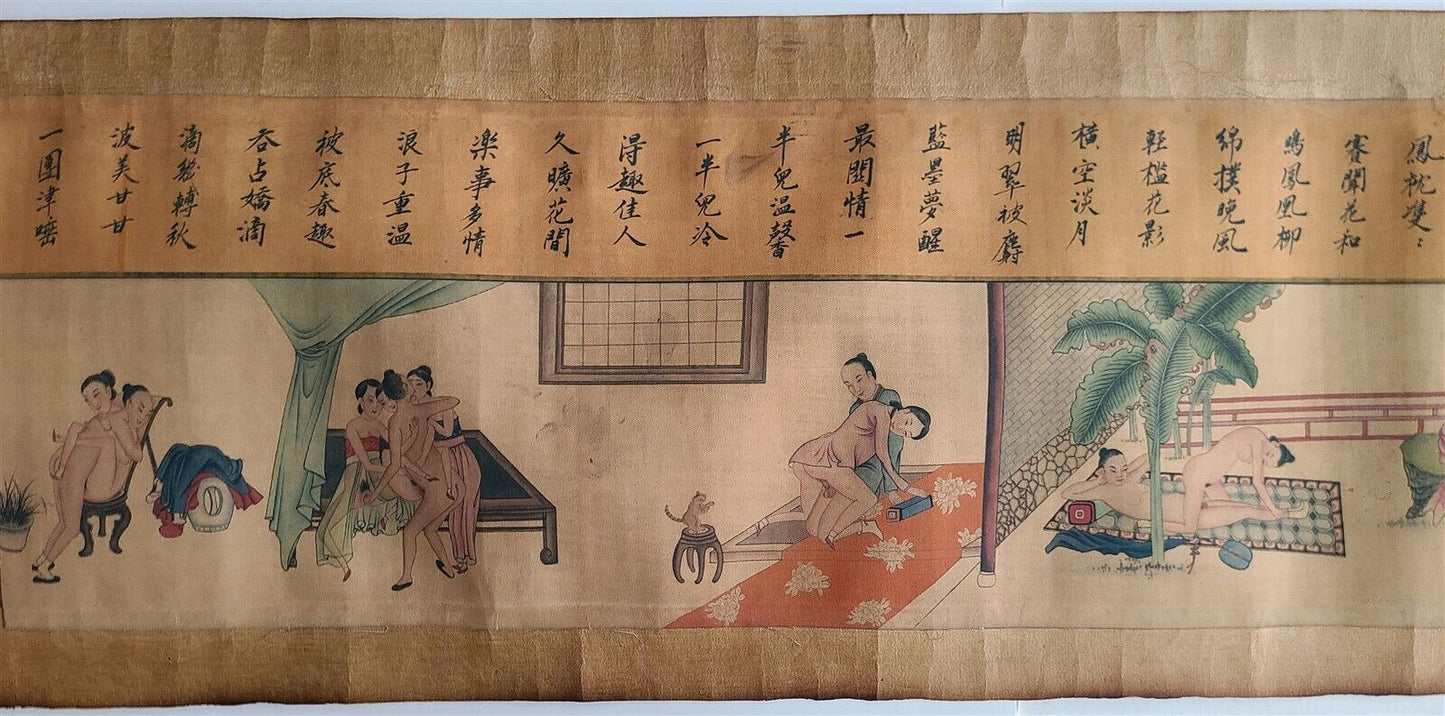 鳳枕雙〻
賽闌花和
鳴鳳凰柳
綿撲晚風
輕檻花影
橫空淡月
明翠被麝
藍墨夢醒
最関情一
半皃温馨
一半皃冷
得趣佳人
久曠花間
楽事多情
浪子重温
被底春趣
吞占嬌滴
滴轉秋
波美甘甘
一團津唾